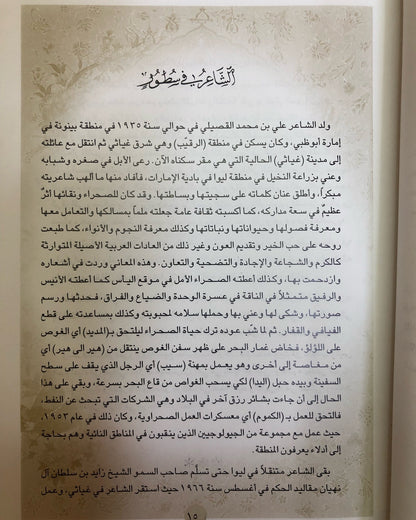 الشاعر في سطور
ولد الشاعر علي بن محمد القصيلي في حوالي سنة ١٩٣٥ في منطقة بينونة في
إمارة أبوظبي، وكان يسكن في منطقة (الرقيب) وهي شرق غياثي ثم انتقل مع عائلته
إلى مدينة (غياثي) الحالية التي هي مقر سكناه الآن. رعى الأبل في صغره وشبابه
وعني بزراعة النخيل في منطقة ليوا في بادية الإمارات. فأفاد منها ما ألهب شاعريته
مبكراً، وأطلق عنان كلماته على سجيتها وبساطتها. وقد كان للصحراء ونقائها أثرٌ
عظيمٌ في سعة مداركه، كما أكسبته ثقافة عامة جعلته ملماً بمسالكها والتعامل معها
ومعرفة فصولها وحيواناتها ونباتاتها وكذلك معرفة النجوم والأنواء، كما طبعت
روحه على حب الخير وتقديم العون وغير ذلك من العادات العربية الأصيلة المتوارثة
كالكرم والشجاعة والإجادة والتضحية والتعاون. وهذه المعاني وردت في أشعاره
وازدحمت بها، وكذلك أعطته الصحراء الأمل في موقع الياس كما أعطته الأنيس
والرفيق متمثلاً في الناقة في عسرة الوحدة والضياع والفراق، فحدثها ورسم
صورتها، وشكى لها وعني بها وحملها سلامه لمحبوبته وكذلك بمساعدته على قطع
الفيافي والقفار. ثم لما شبّ عوده ترك حياة الصحراء ليلتحق بـ(المديد) أي الغوص
على اللؤلؤ، فخاض غمار البحر على ظهر سفن الغوص ينتقل من (هير الى هير) أي
من مغاصة إلى أخرى وهو يعمل بمهنة (سيب) أي الرجل الذي يقف على سطح
السفينة وبيده حبل (اليدا) لكي يسحب الغواص من قاع البحر بسرعة، وبقي على هذا
الحال إلى أن جاءت بشائر رزق آخر في البلاد وهي الشركات التي تبحث عن النفط،
فالتحق للعمل بـ(الكموم) أي معسكرات العمل الصحراوية، وكان ذلك في عام ١٩٥٣،
حيث عمل مع مجموعة من الجيولوجيين الذين ينقبون في المناطق النائية وهم بحاجة
إلى أدلاء يعرفون المنطقة.
بقي الشاعر متنقلاً في ليوا حتى تسلّم صاحب السمو الشيخ زايد بن سلطان آل
نهيان مقاليد الحكم في أغسطس سنة ١٩٦٦ حيث استقر الشاعر في غياثي، وعمل
١٥